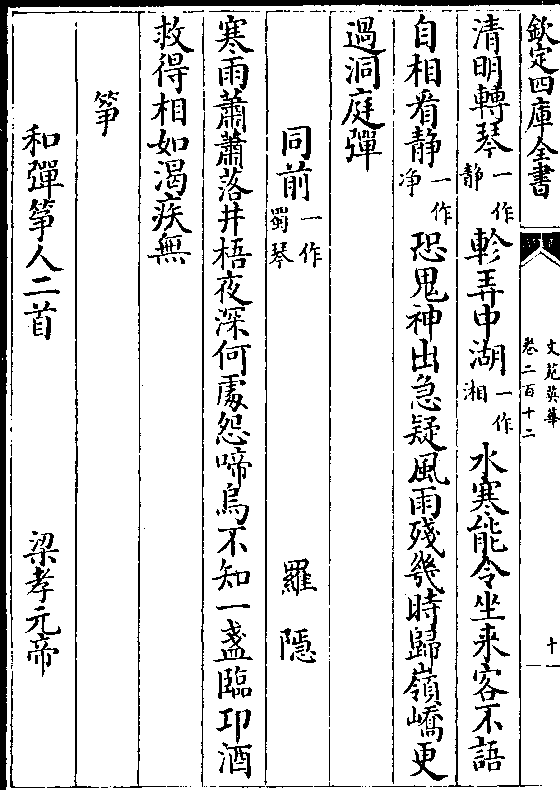 欽定四庫全書
文苑英華
卷二百十二
十一
清明轉琴一作靜軫弄中湖一作湘水寒能令坐来客不語
自相看静一作净恐鬼神出急疑風雨殘幾時歸嶺嶠更
過洞庭彈
同前一作蜀琴 羅隱
寒雨蕭蕭落井梧夜深何處怨啼烏不知一盞臨卭酒
救得相如渴疾無
箏
和彈箏人二首 梁孝元帝